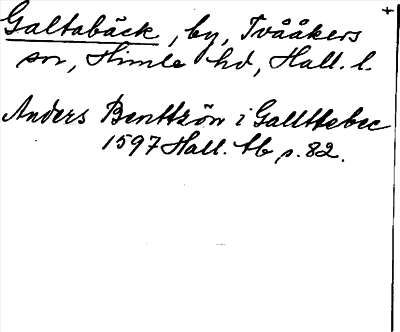 Galtabäck, by, Tvååkers +
sn, Himle hd, Hall. l.
Anders Benttzön i Gallttebec
1597 Hall. tb s. 82.